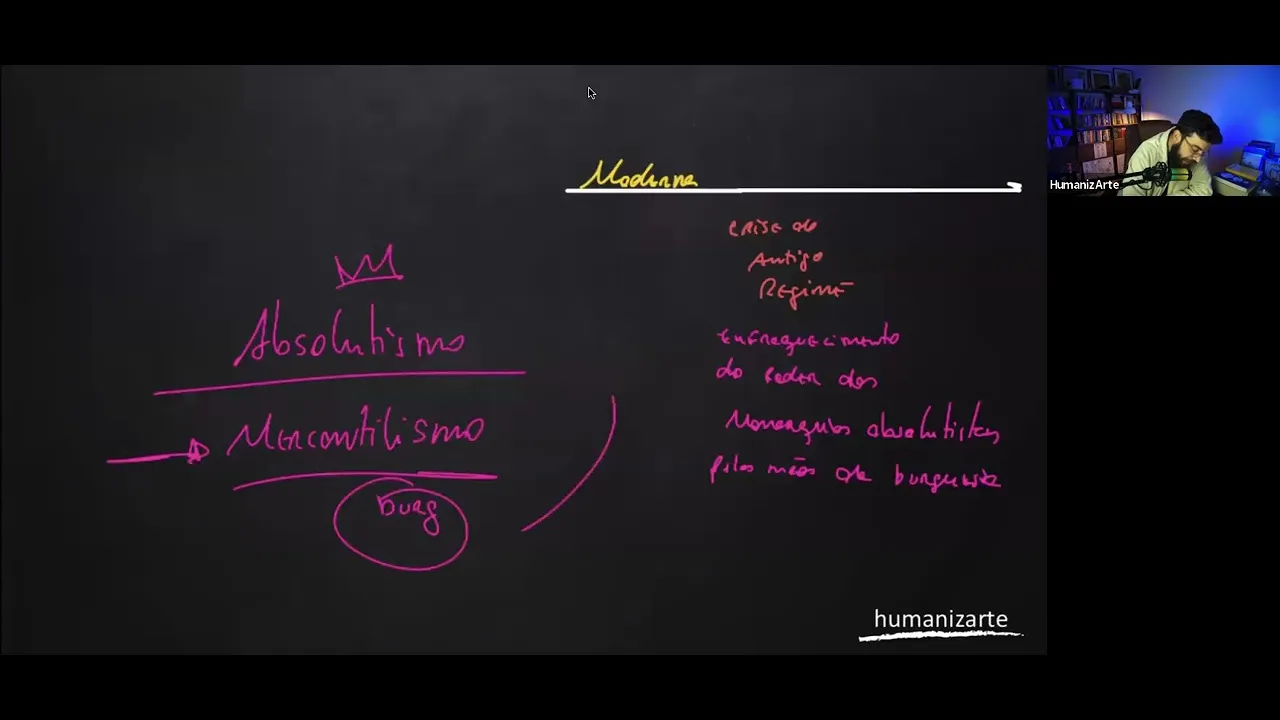 Moderna
crise do
Antigo
Regime
Absolutismo
Mercantilismo
burg
enfraquecimento
do poder das
Monarquias absolutistas
pelas mãos da burguesia
humanizarte
HumanizArte